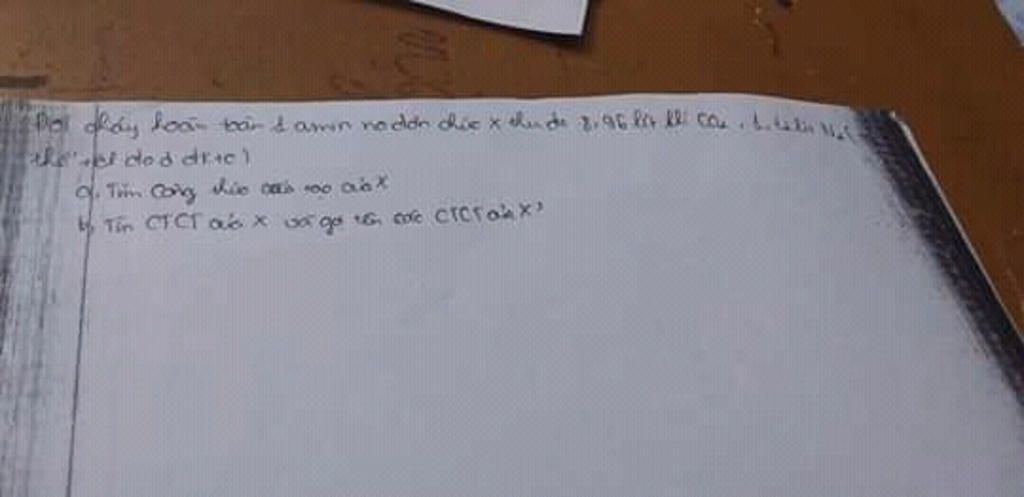 Đốt cháy hoàn toàn 1 amin no đơn chức X thu đc 8,96 lít khí CO2, N2(
thể tích đo ở đktc)
a, Tìm công thức cấu tạo của X
b, Tìm CTCT của X và gọi tên các CTCT của X?